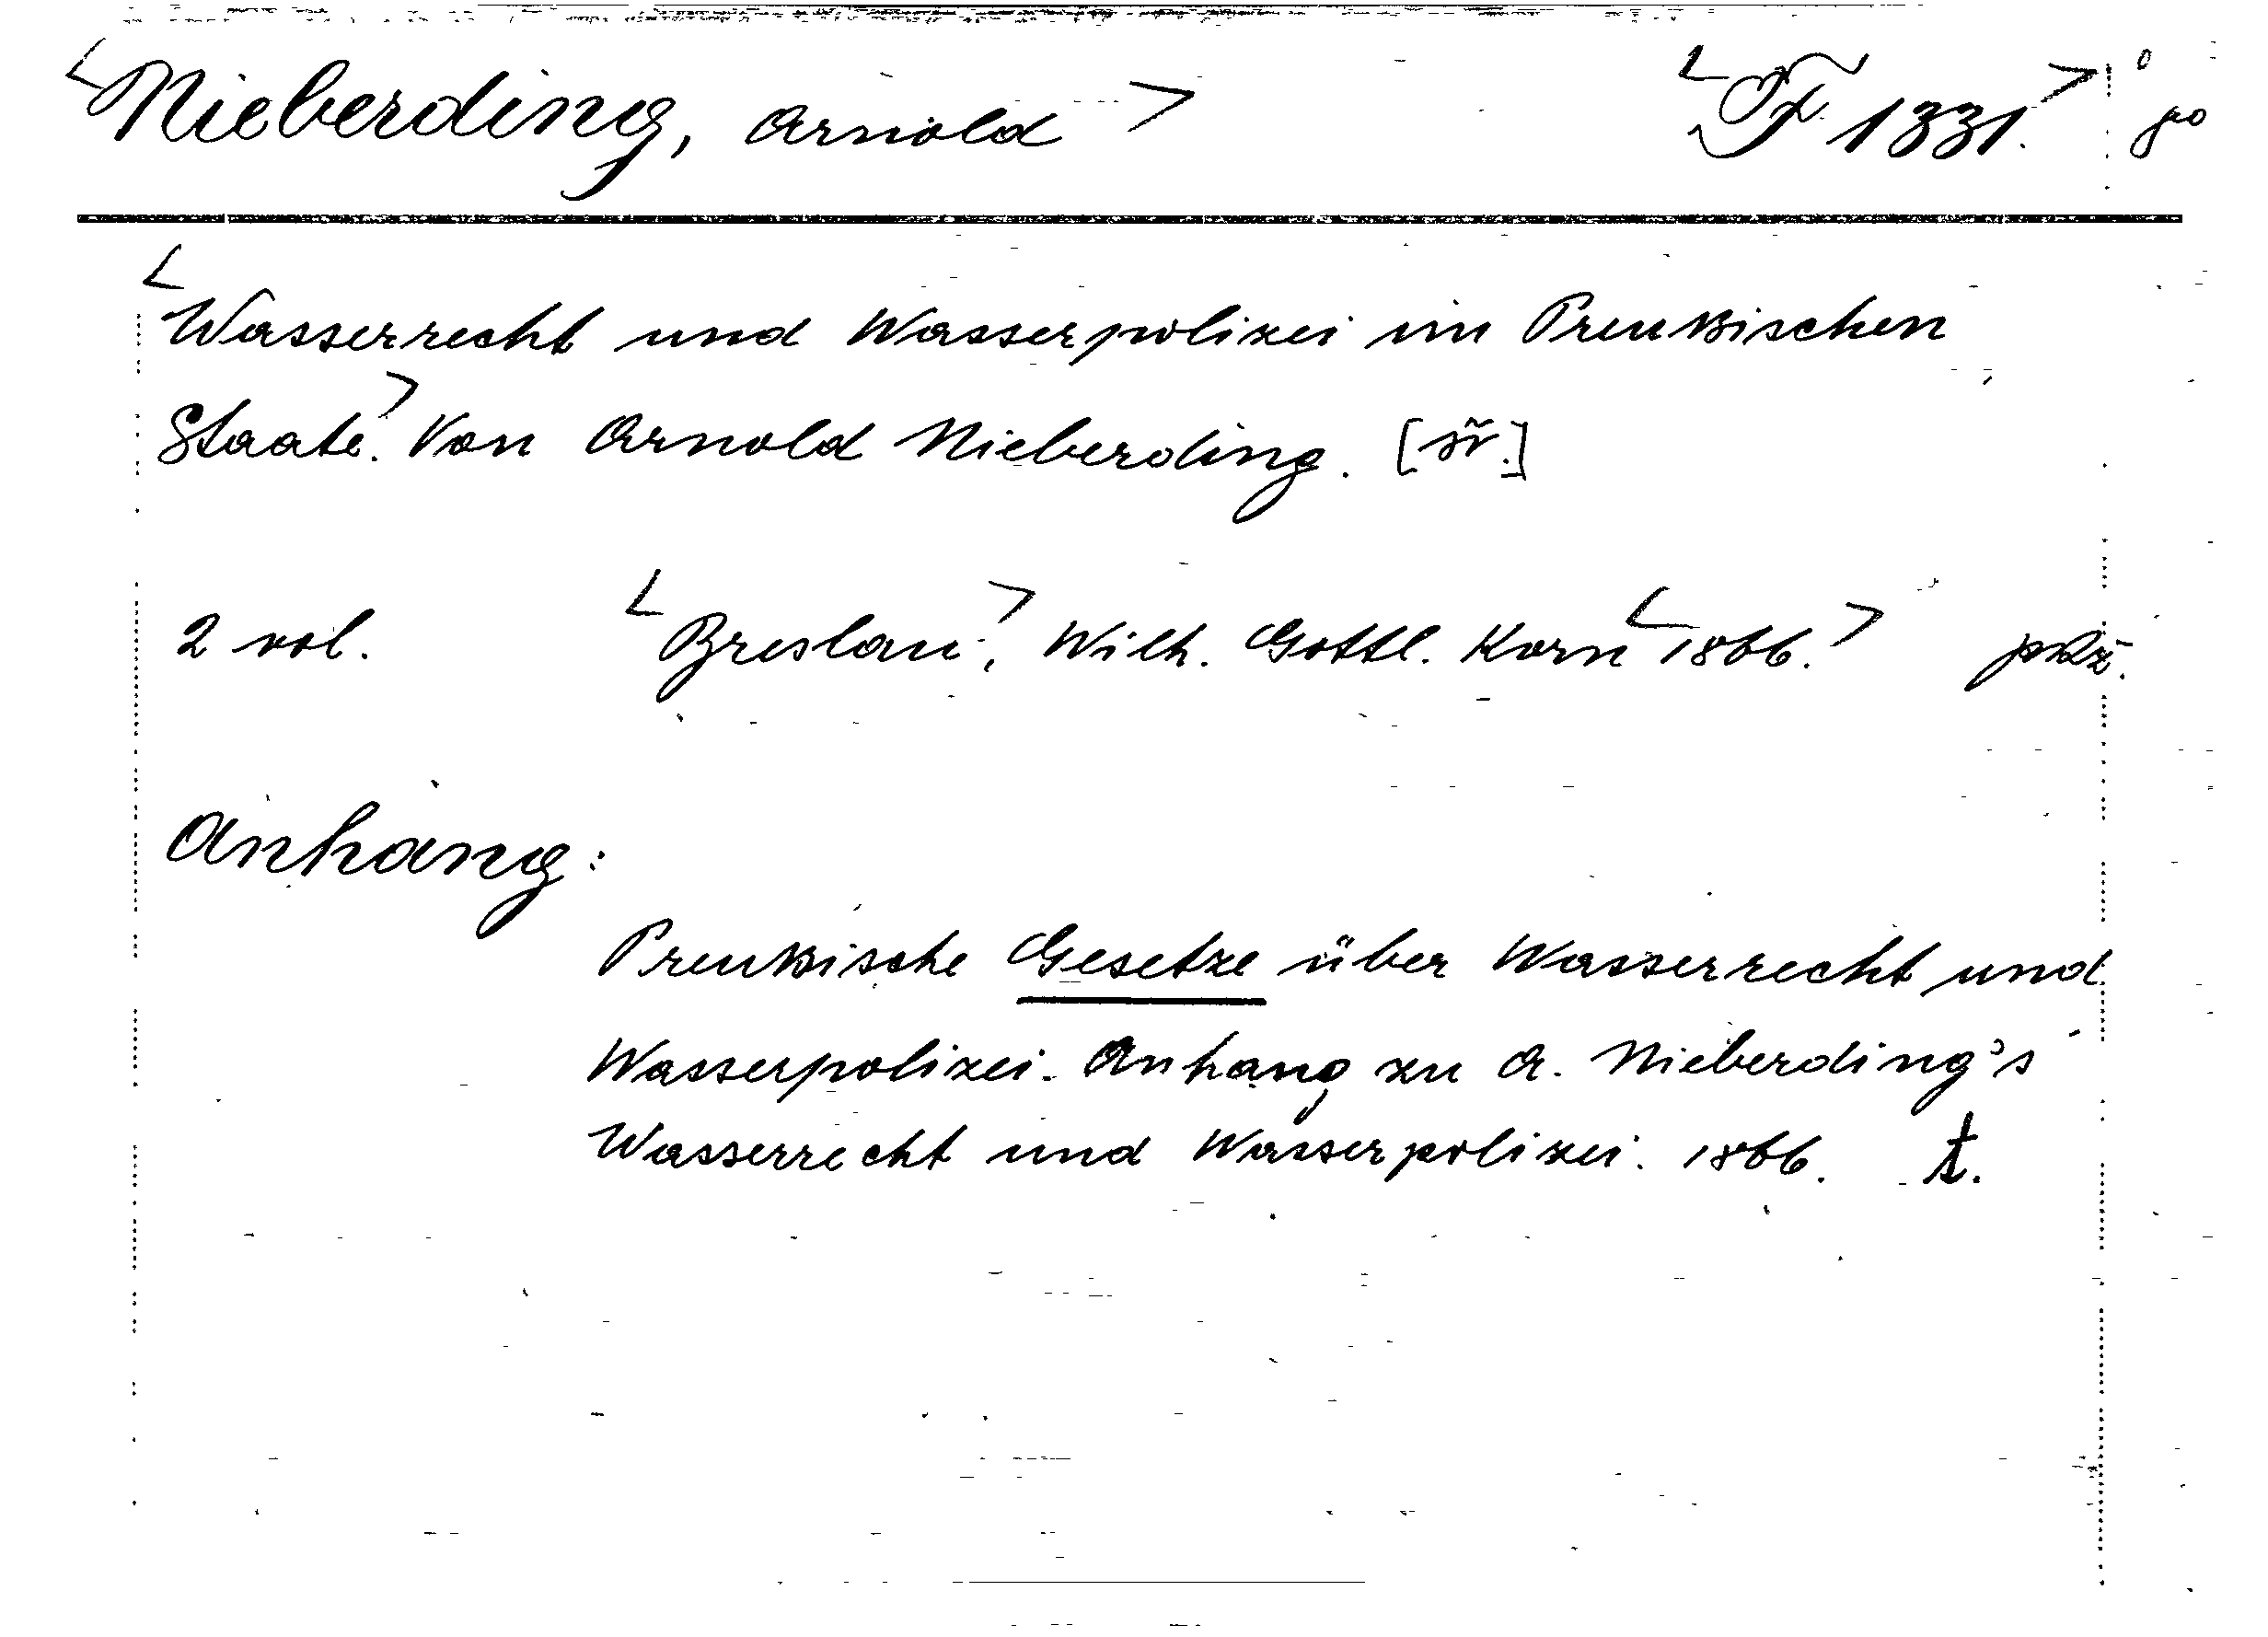 <Nieberding, Arnold> <F 1331.> po
<Wasserrecht und Wasserpolizei im Preußischen
Staate.> Von Arnold Nieberding. [sv.]
2 vol. <Breslau>, Wilh. Gottl. Korn <1866.>
Anhang:
Preußische Gesetze über Wasserrecht und
Wasserpolizei. Anhang zu A. Nieberding's
Wasserrecht und Wasserpolizei. 1866. t.